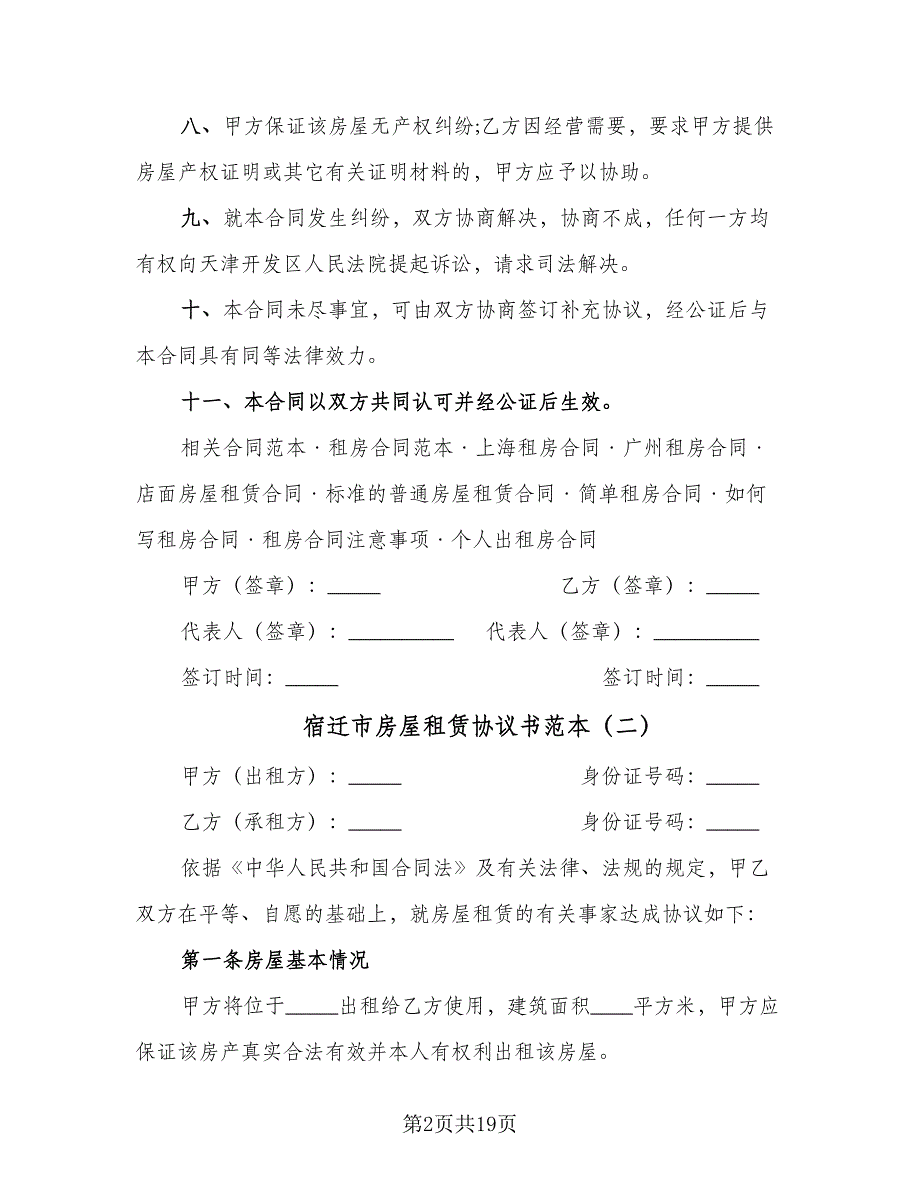 八、甲方保证该房屋无产权纠纷;乙方因经营需要，要求甲方提供
房屋产权证明或其它有关证明材料的，甲方应予以协助。
九、就本合同发生纠纷，双方协商解决，协商不成，任何一方均
有权向天津开发区人民法院提起诉讼，请求司法解决。
十、本合同未尽事宜，可由双方协商签订补充协议，经公证后与
本合同具有同等法律效力。
十一、本合同以双方共同认可并经公证后生效。
相关合同范本·租房合同范本·上海租房合同·广州租房合同·
店面房屋租赁合同·标准的普通房屋租赁合同·简单租房合同·如何
写租房合同·租房合同注意事项·个人出租房合同
甲方（签章）：_____ 乙方（签章）：_____
代表人（签章）：__________ 代表人（签章）：__________
签订时间：_____ 签订时间：_____
宿迁市房屋租赁协议书范本（二）
甲方（出租方）：_____ 身份证号码：_____
乙方（承租方）：_____ 身份证号码：_____
依据《中华人民共和国合同法》及有关法律、法规的规定，甲乙
双方在平等、自愿的基础上，就房屋租赁的有关事家达成协议如下：
第一条房屋基本情况
甲方将位于_____出租给乙方使用，建筑面积____平方米，甲方应
保证该房产真实合法有效并本人有权利出租该房屋。
第2页共19页